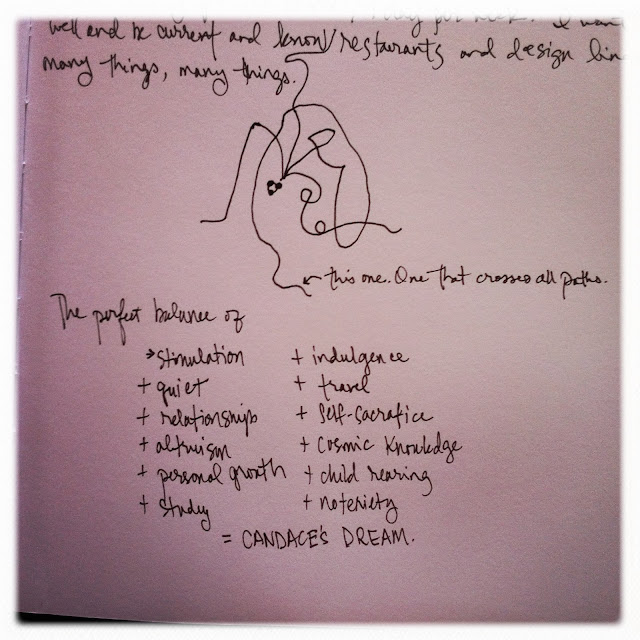 per week. I wan
well and be current and know restaurants and design
many things, many things.
this one. One that crosses all paths.
The perfect balance of
→ stimulation + indulgence
+ quiet + travel
+ relationships + self-sacrafice
+ altruism + Cosmic Knowledge
+ personal growth + child rearing
+ study + noteriety
= CANDACE'S DREAM.